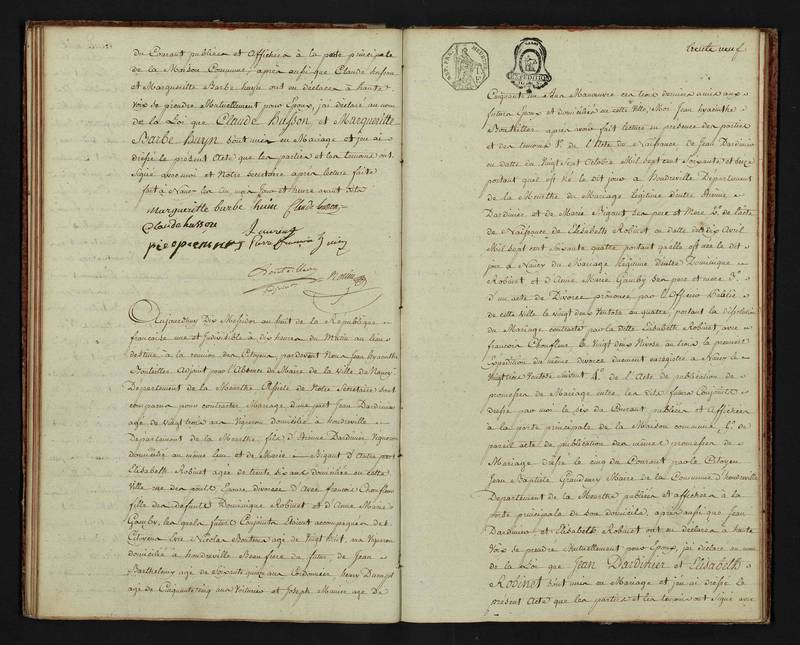 du Courant publiées et Affichées à la porte principale
de la Maison Commune, après aussi que Claude husson
et Margueritte Barbe huyn ont eu déclaré à haute
Voix se prendre Mutuellement pour Epoux, j'ai déclaré au nom
de la Loi que Claude Husson et Margueritte
Barbe Huyn sont unis en Mariage et j'en ai
dressé le présent Acte que les parties et les témoins ont
Signé avec moi et Notre Secrétaire après lecture faite
fait à Nancy les an, mois, jour et heure avant dits
margueritte barbe huin
Claude husson
Aujourd'huy Dix Messidor an huit de la République
française une et Indivisible à dix heures du Matin au lieu
destiné à la réunion des Citoyens, pardevant Nous Jean hyacinthe
Bouteiller Adjoint pour l'Absence du Maire de la Ville de Nancy
Département de la Meurthe Assisté de Notre Secrétaire sont
comparus pour contracter Mariage, d'une part Jean Dardinier
agé de vingt trois ans Vigneron domicilié à houdreville
Département de la Meurthe fils d'Etienne Dardinier Vigneron
domicilié au même lieu et de Marie Bigaut d'Autre part
Elisabeth Robinet agée de trente six ans domiciliée en cette
Ville rue des Epouse divorcée d'avec françois Chonfleur
fille des défunts Dominique Robinet et d'Anne Marie
Gamby, lesquels futurs Conjoints étoient accompagnés des
Citoyens Nicolas agé de vingt huit ans Vigneron
domicilié à houdreville Beau frère du futur, de Jean
Barthelemy agé de soixante quinze ans Cordonnier henry
agé de Cinquante cinq ans Voiturier et Joseph Maurice agé de
trente neuf
Cinquante un Ans Manœuvre ces trois derniers amis aux
futurs Epoux et domiciliés en cette Ville, Moi Jean hyacinthe
Boutteiller après avoir fait lecture en présence des parties
et des témoins 1°. de l'Acte de Naissance de Jean Dardinier
en datte du Vingt sept Octobre Mil sept cent Soixante et
portant quel est né le dit jour à houdreville Département
de la Meurthe du Mariage légitime d'entre Etienne
Dardinier et de Marie Bigaut ses père et Mère 2°. de l'acte
de Naissance d'Elisabeth Robinet en datte du dix Avril
Mil sept cent soixante quatre portant quelle est née le dit
jour à Nancy du Mariage légitime d'entre Dominique
Robinet et d'Anne Marie Gamby ses père et mère 3°.
d'un acte de Divorce prononcé par l'Officier Public
de cette Ville le vingt deux Ventose an quatre, portant la dissolution
du Mariage contracté par la ditte Elisabeth Robinet, avec
francois Chonfleur le Vingt deux Nivose an trois la première
Expédition du même divorce duement enregistrée à Nancy le
Vingt trois Ventose suivant 4°. de l'Acte de publication de
promesses de Mariage entre les dits futurs Conjoints
dressé par moi le six du Courant publiées et Affichées
à la porte principale de la Maison commune, 5°. de
pareil acte de publication des mêmes promesses de
Mariage dressé le cinq du Courant par le Citoyen
Jean Baptiste Maire de la Commune d'houdreville
Département de la Meurthe publiées et affichées à la
porte principale de son domicile, après aussi que Jean
Dardinier et Elisabeth Robinet ont eu déclaré à haute
Voix se prendre Mutuellement pour Epoux, j'ai déclaré au nom
de la Loi que Jean Dardinier et Elisabeth
Robinet sont unis en Mariage et j'en ai dressé le
présent Acte que les parties et les témoins ont signé avec